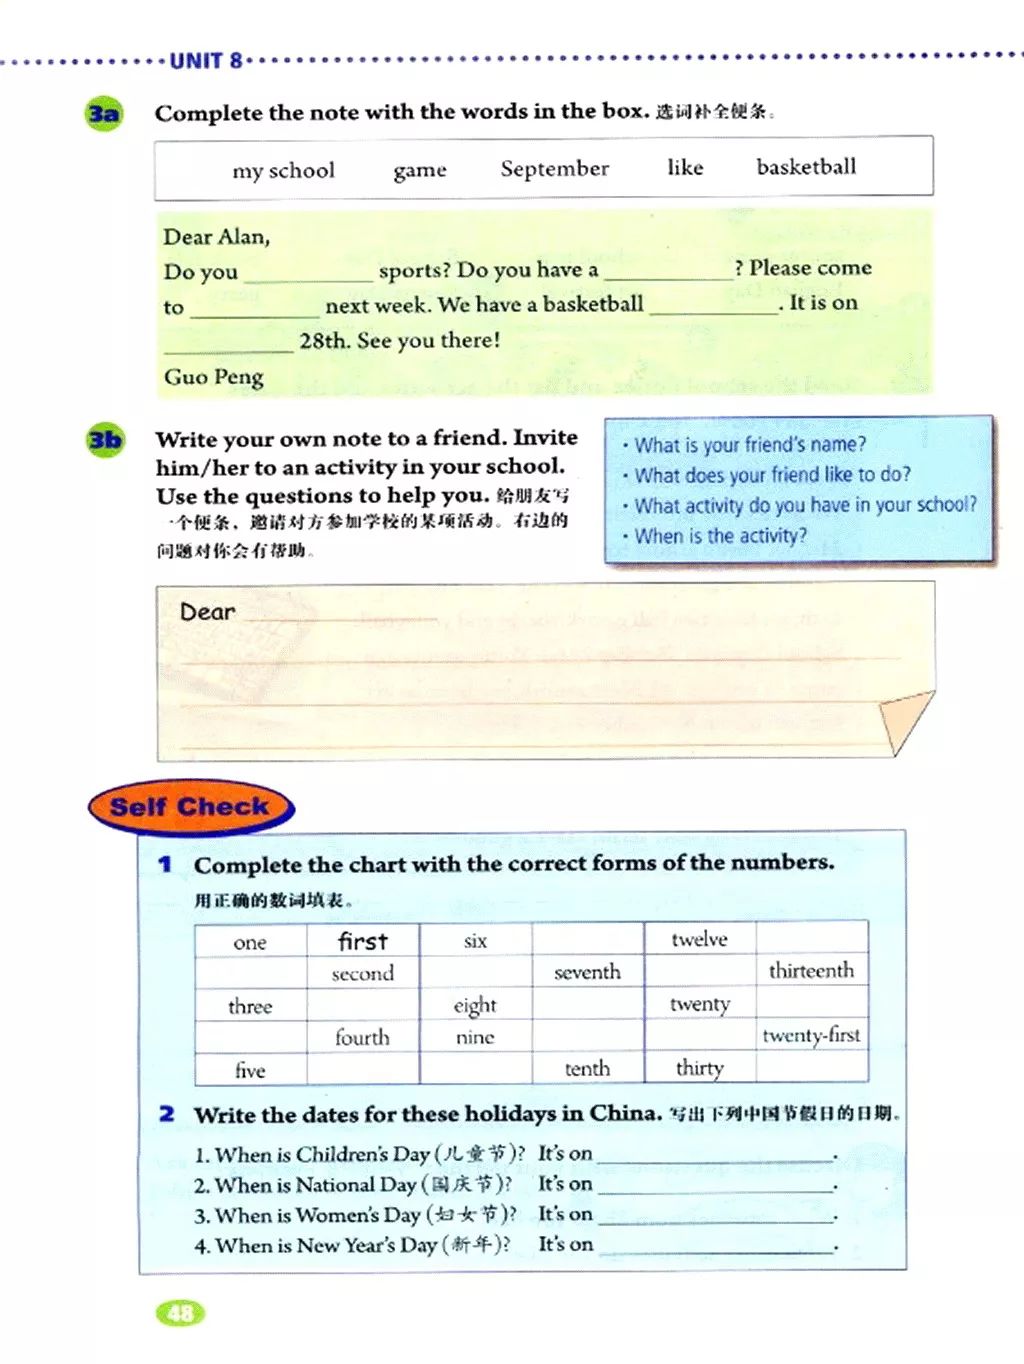 UNIT 8
3a Complete the note with the words in the box. 选词补全便条。
my school game September like basketball
Dear Alan,
Do you ____________ sports? Do you have a ____________? Please come
to ____________ next week. We have a basketball ____________. It is on
____________ 28th. See you there!
Guo Peng
3b Write your own note to a friend. Invite
him/her to an activity in your school.
Use the questions to help you. 给朋友写
一个便条，邀请对方参加学校的某项活动。右边的
问题对你会有帮助。
• What is your friend's name?
• What does your friend like to do?
• What activity do you have in your school?
• When is the activity?
Dear
Self Check
1 Complete the chart with the correct forms of the numbers.
用正确的数词填表。
one first six twelve
second seventh thirteenth
three eight twenty
fourth nine twenty-first
five tenth thirty
2 Write the dates for these holidays in China. 写出下列中国节假日的日期。
1. When is Children's Day (儿童节)? It's on ____________.
2. When is National Day (国庆节)? It's on ____________.
3. When is Women's Day (妇女节)? It's on ____________.
4. When is New Year's Day (新年)? It's on ____________.
48